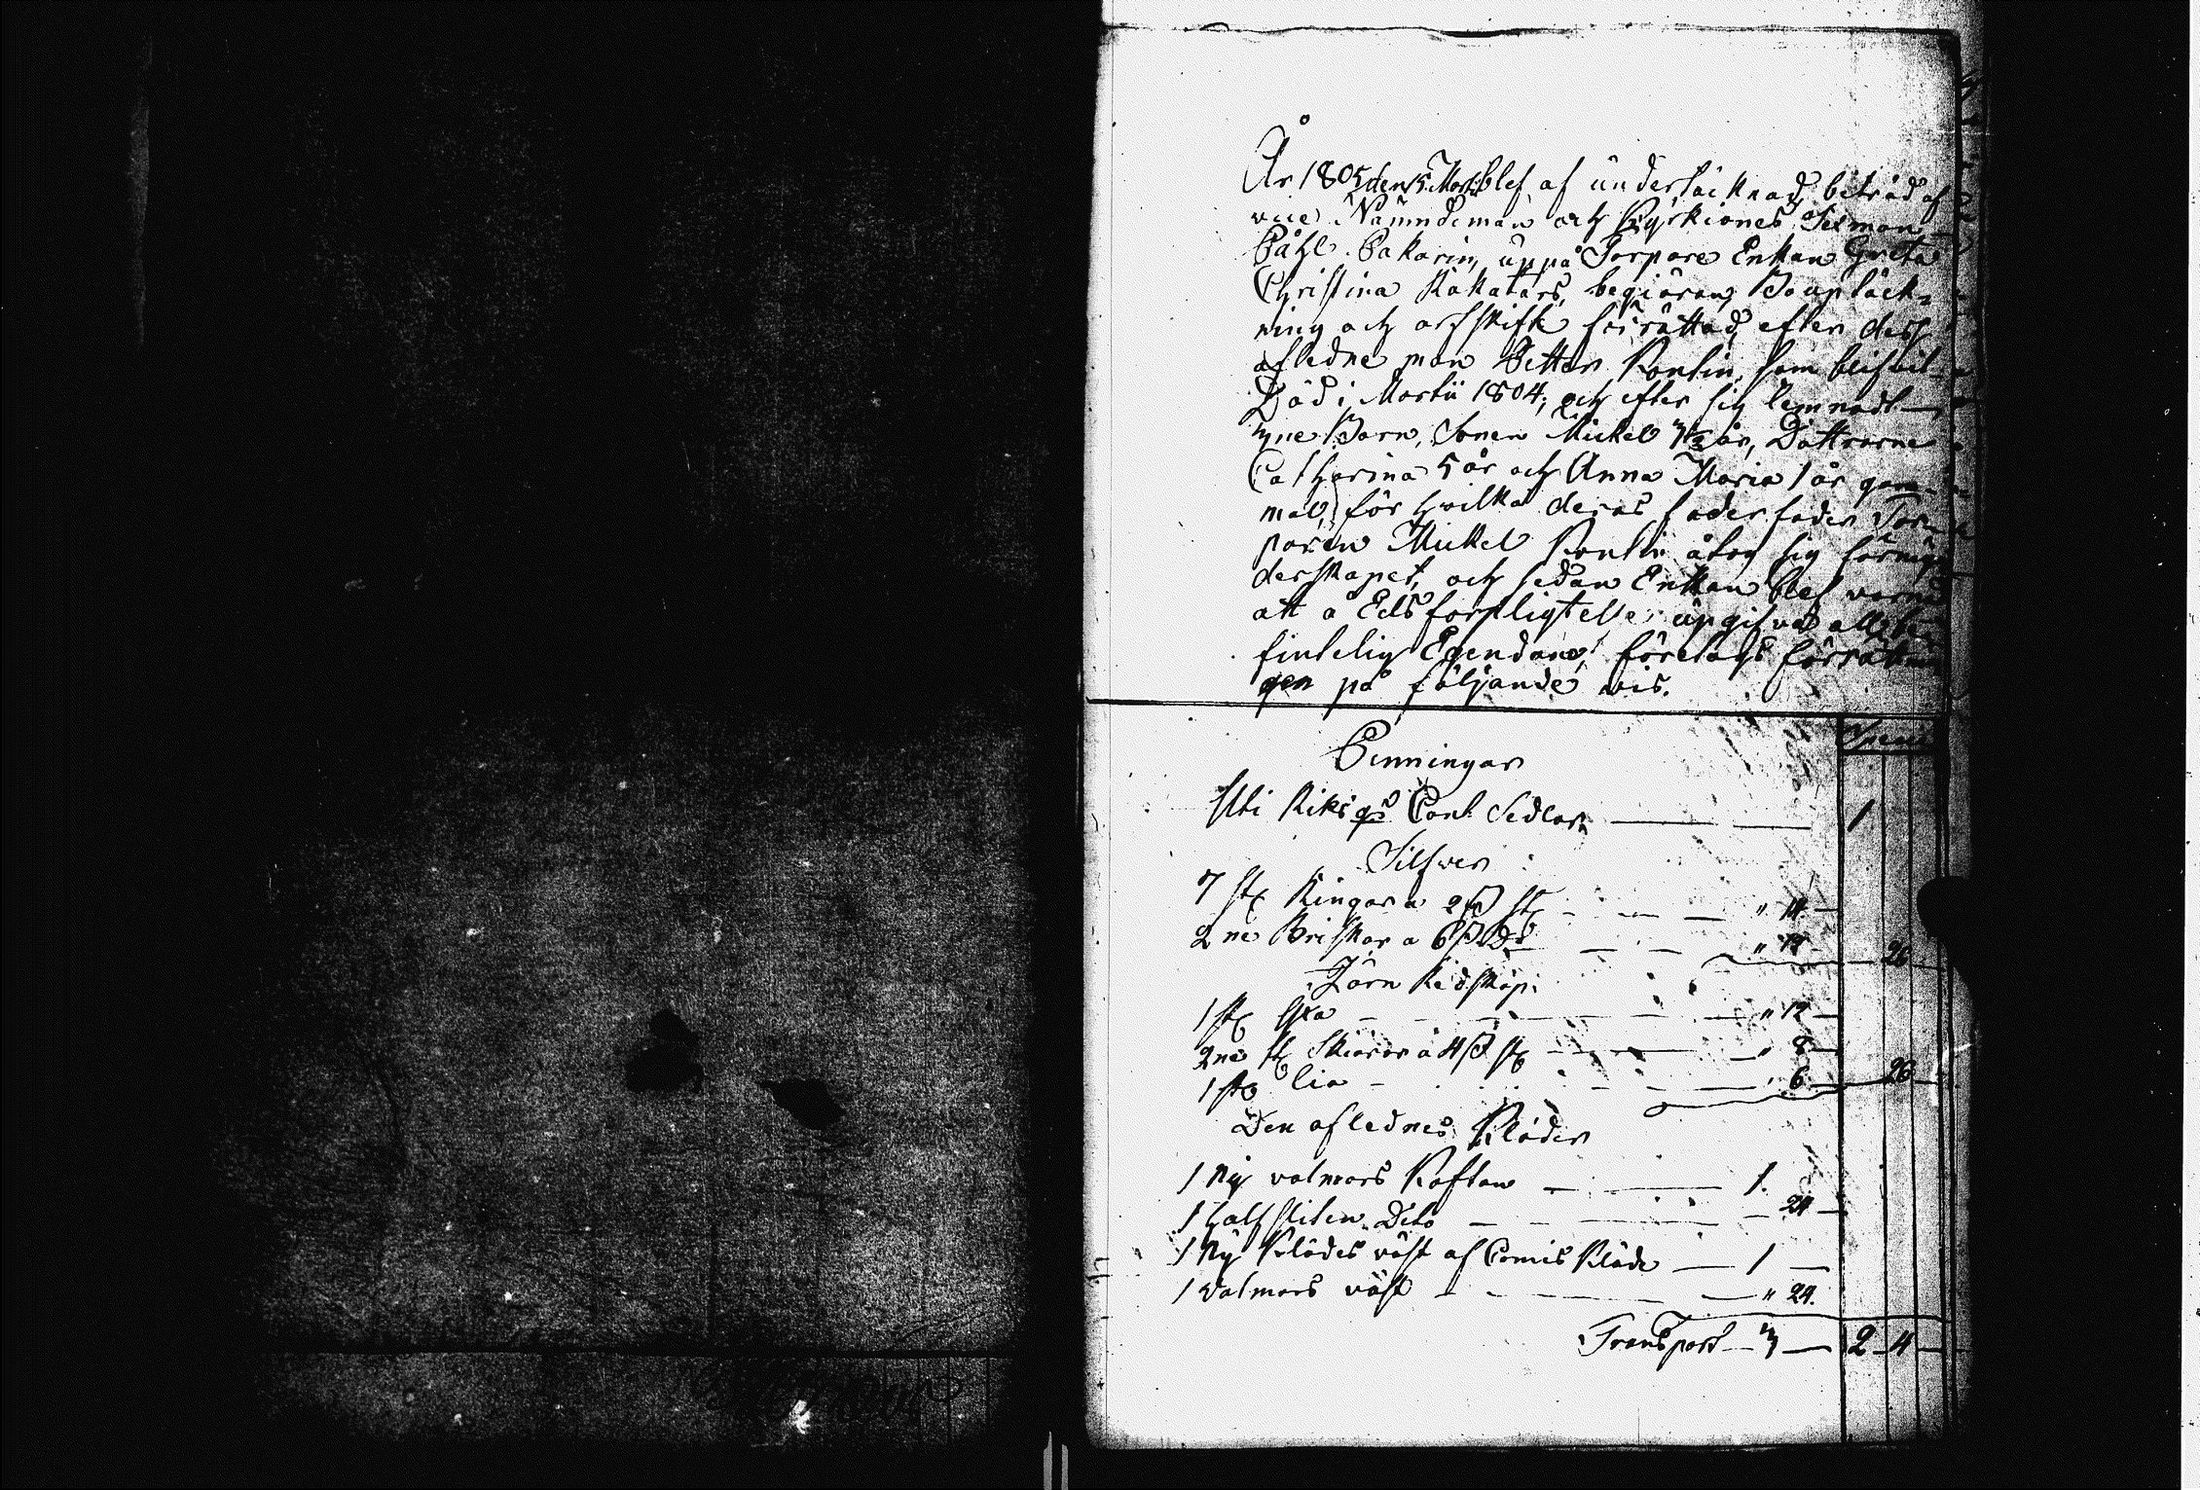 År 1805 den 15 Martii blef af undertäcknad, biträd af
vice Nämndeman och Kyrkiones Sexman
Påhl Pakarin, uppå Torpare Enkan Greta
Christina Kakatars, begiäran, Bouptäck-
ning och arfskifte förrättad, efter dess
afledne man Petter Rontin, som blifvit
Död i Martii 1804, och efter sig lemnadt
3ne Barn, Sonen Mickel 7½ år, Döttrarne
Catharina 5 år och Anna Maria 1 år gam-
mal, för hvilka deras faderfader Tor-
paren Mickel Rontin åtog sig förmyn
derskapet, och sedan Enkan blef varnad
att å Edsförpligtelse upgifva all be
fintelig Egendom, företogs förrättnin
gen på följande vis.
Penningar
Uti Riksgs Cont. Sedlar 1
Silfver
7 st Ringar a 2 ß st " 14
2ne Briskor a 6 ß D:o " 12 26
Järn Redskap
1 st Yxa " 12
2ne st Skäror a 4 ß st " 8
1 st lia " 6 26
Den aflednes Kläder
1 Ny valmars Kaftan 1
1 half sliten Dito 24
1 Ny Klädes väst af Comis Kläde 1
1 Valmars väst " 24
Transport 3 2 4